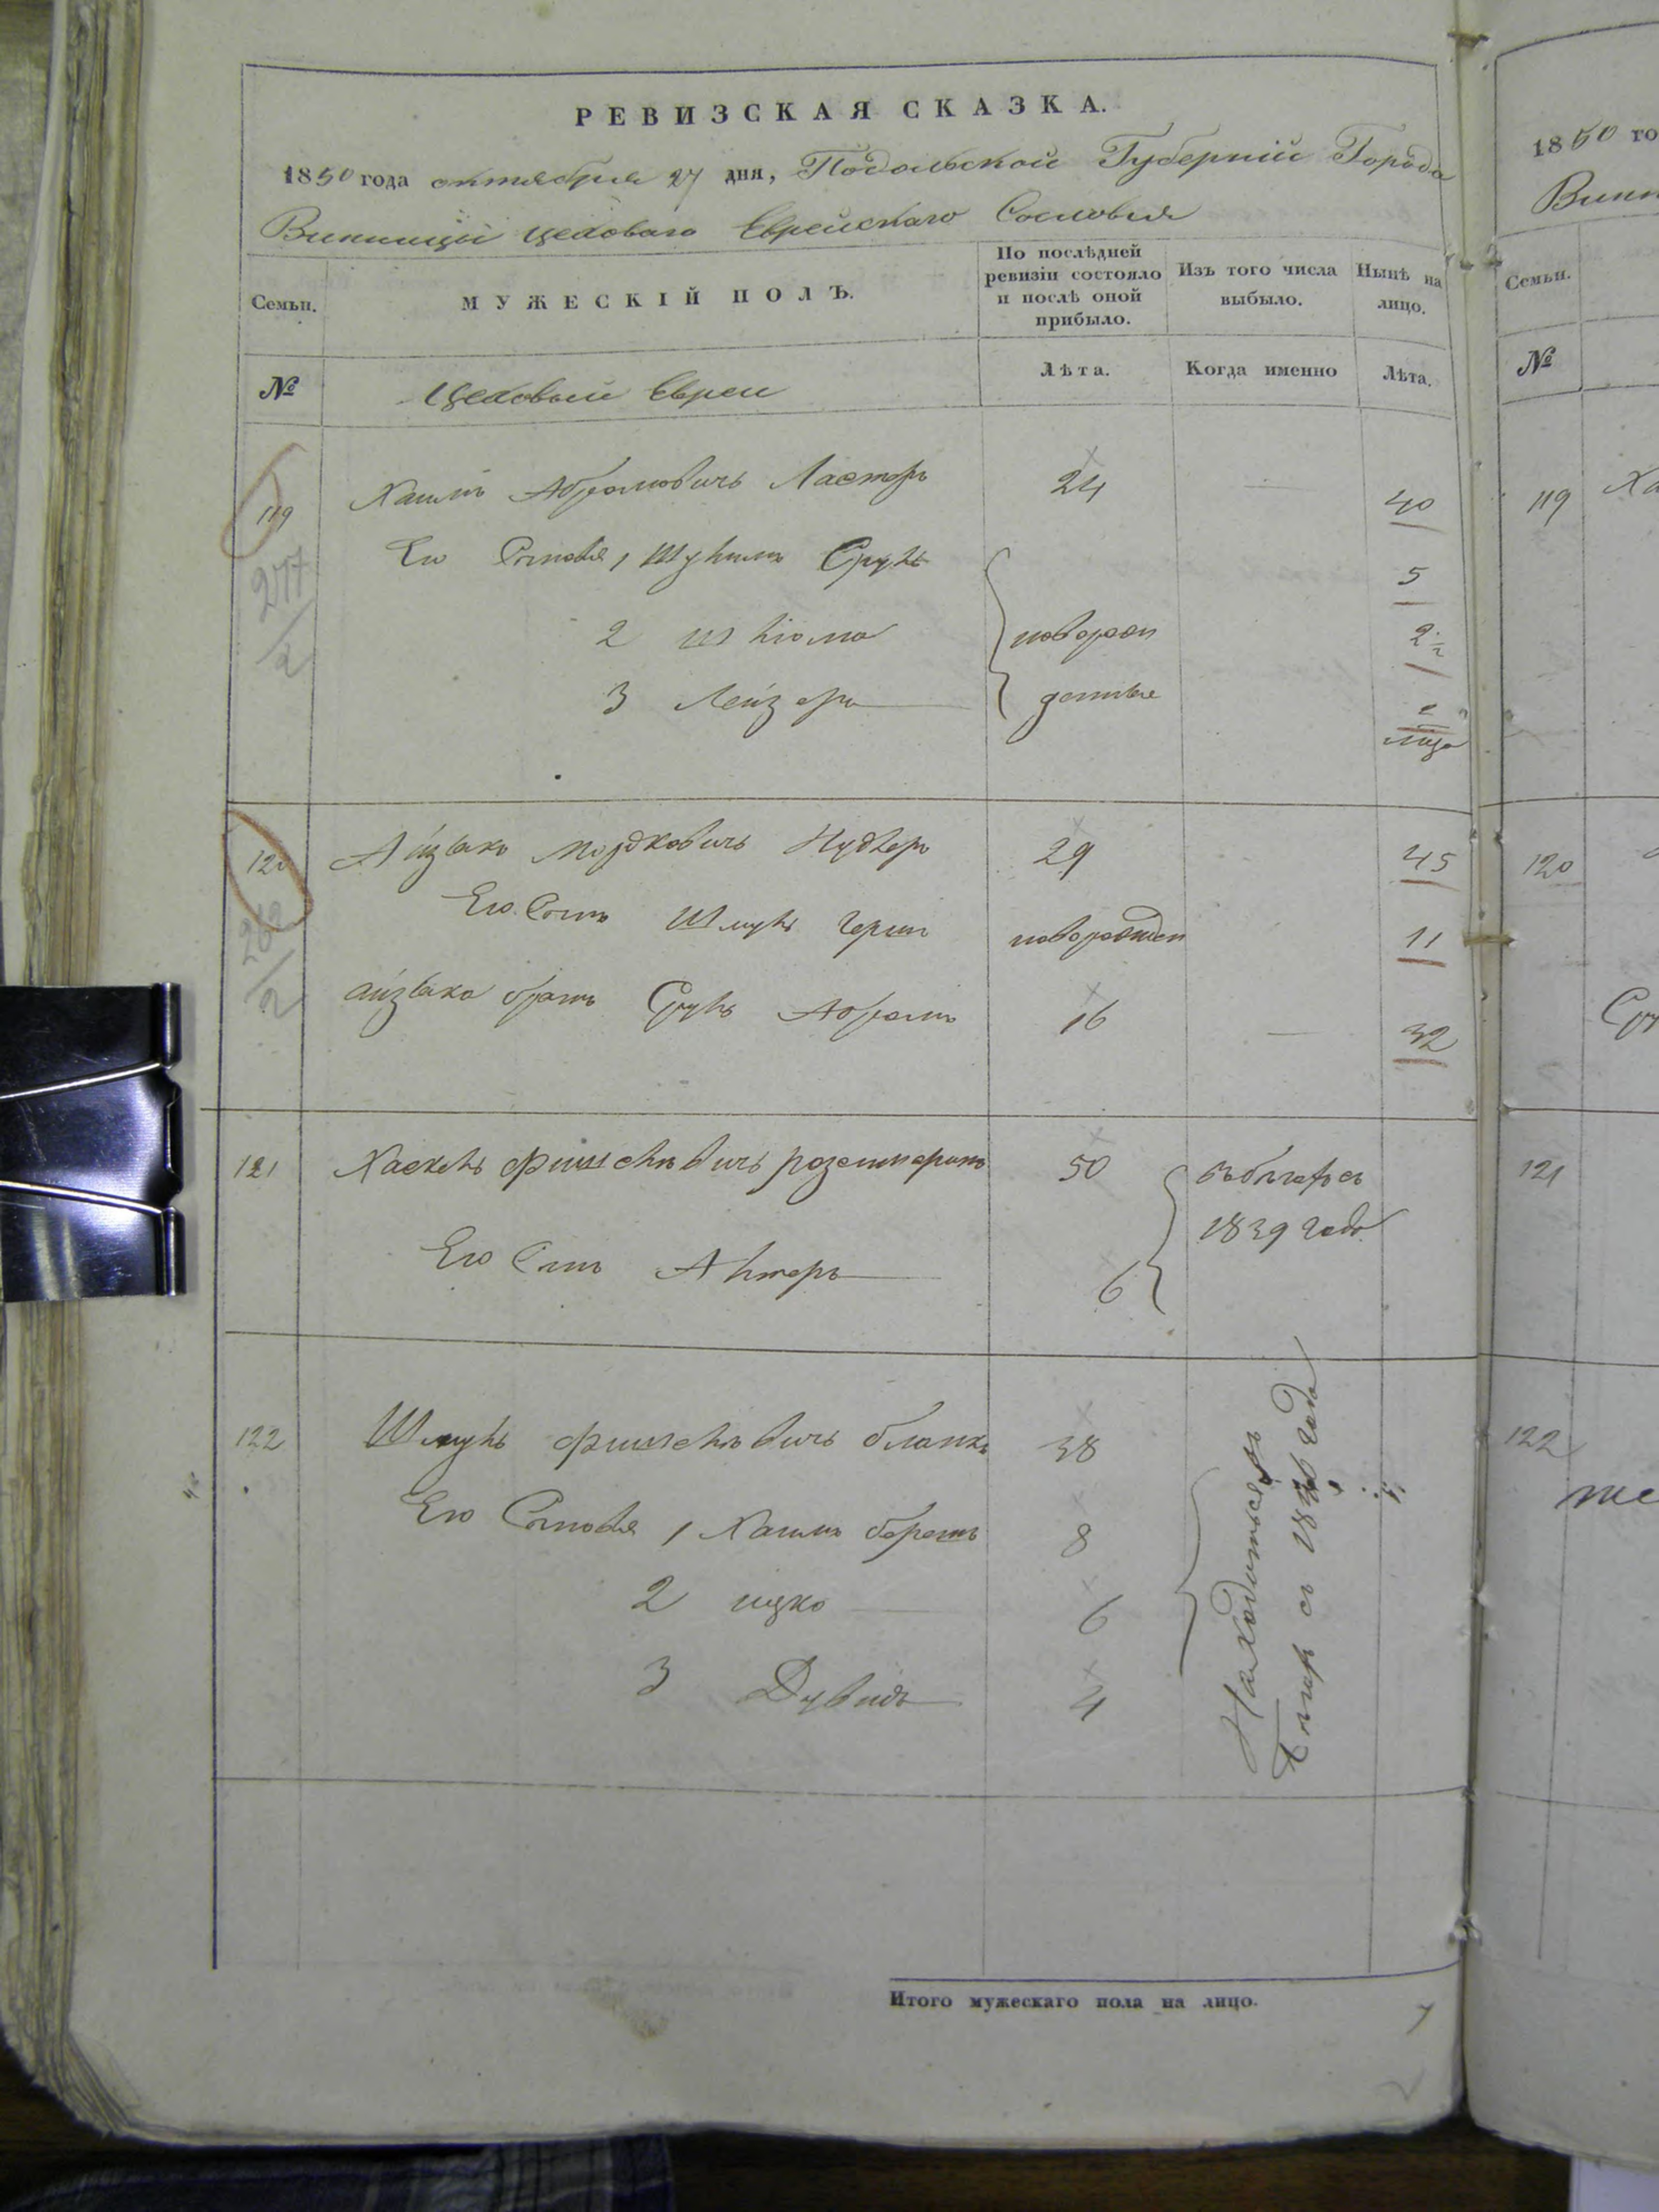 РЕВИЗСКАЯ СКАЗКА.
1850 года октября 27 дня, Подольской Губернiи Города
Винницы цеховаго Еврейскаго Сословия
Семьи.
МУЖЕСКIЙ ПОЛЪ.
По послѣдней ревизiи состояло и послѣ оной прибыло.
Изъ того числа выбыло.
Нынѣ на лицо.
№
Цеховыи Евреи
Лѣта.
Когда именно
Лѣта.
119 Хаимъ Абрамовичъ Ластеръ 24 — 40
Его Сыновья 1 Шулимъ Сруль 5
2 Шлiома новорож 2 1/2
3 Лейзеръ денные
277/2
120 Айзыко Мордковичъ Нудлеръ 29 45
Его Сынъ Шмуль Герши новорожден 11
айзыка братъ Сруль Абрамъ 16 — 32
121 Хаскель Фишелевичъ Розенштеринъ 50 въ бѣгахъ съ
1839 года
Его Сынъ Алтеръ 6
122 Шмуль Фишелевичъ бланкъ 38
Его Сыновья 1 Хаимъ беремъ 8
2 ицко 6
3 Дувидъ 4
Находиться въ
бѣгах съ года
Итого мужескаго пола на лицо. 7
1850 го
Семьи.
№
119 Ха
120
121
122